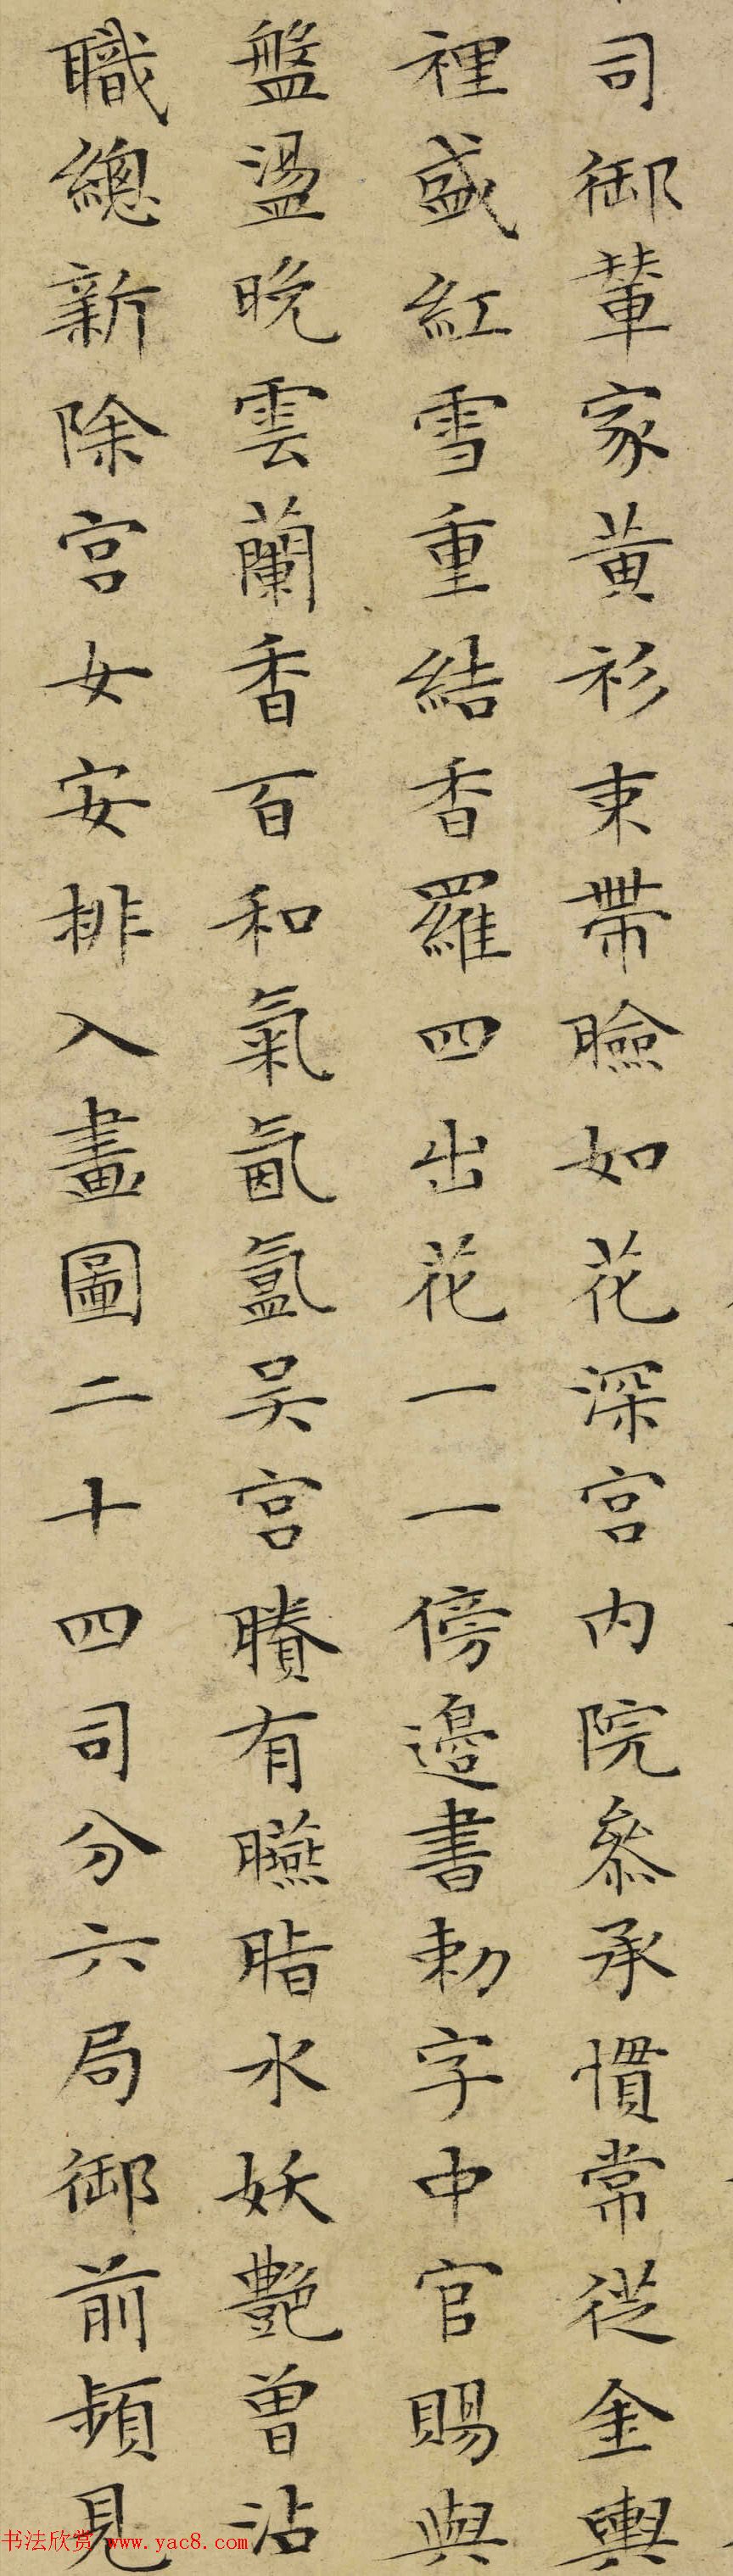 司御輦家黃衫束帶臉如花深宮内院叅承慣常從金輿
裡盛紅雪重結香羅四出花一一傍邊書勅字中官賜與
盤盪晚雲蘭香百和氣氤氳吴宮賸有臙脂水妖艷曾沾
職總新除宮女安排入畫圖二十四司分六局御前頻見
书法欣赏 www.yac8.com